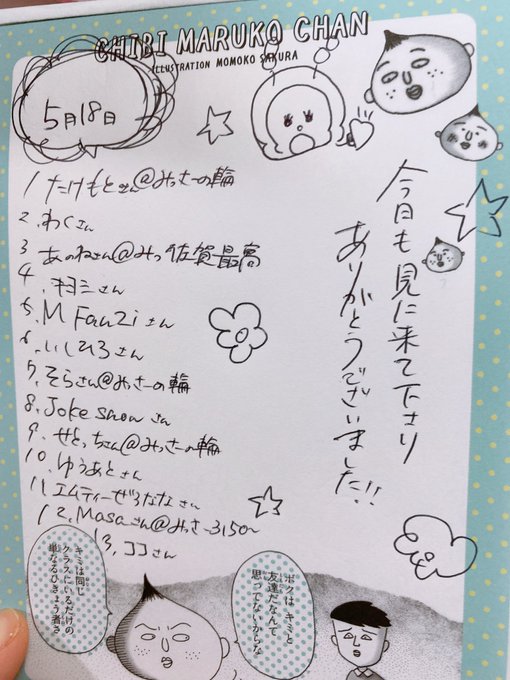 CHIBI MARUKO CHAN
ILLUSTRATION MOMOKO SAKURA
5月18日
今日も見に来て下さり
ありがとうございました!!
1 たけもとさん@みっさーの輪
2. わくさん
3 あのねさん@みっ佐賀最高
4. キヨミさん
5. M Fanzi さん
6. いしひろさん
7. そらさん@みっさーの輪
8. Joke snow さん
9. せとっちさん@みっさーの輪
10. ゆうあとさん
11. エムティーぜろななさん
12. Masaさん@みっさー3150〜
13. ココさん
ボクはキミと
友達だなんて
思ってないからな
キミは同じ
クラスにいるだけの
単なるひきょう者さ